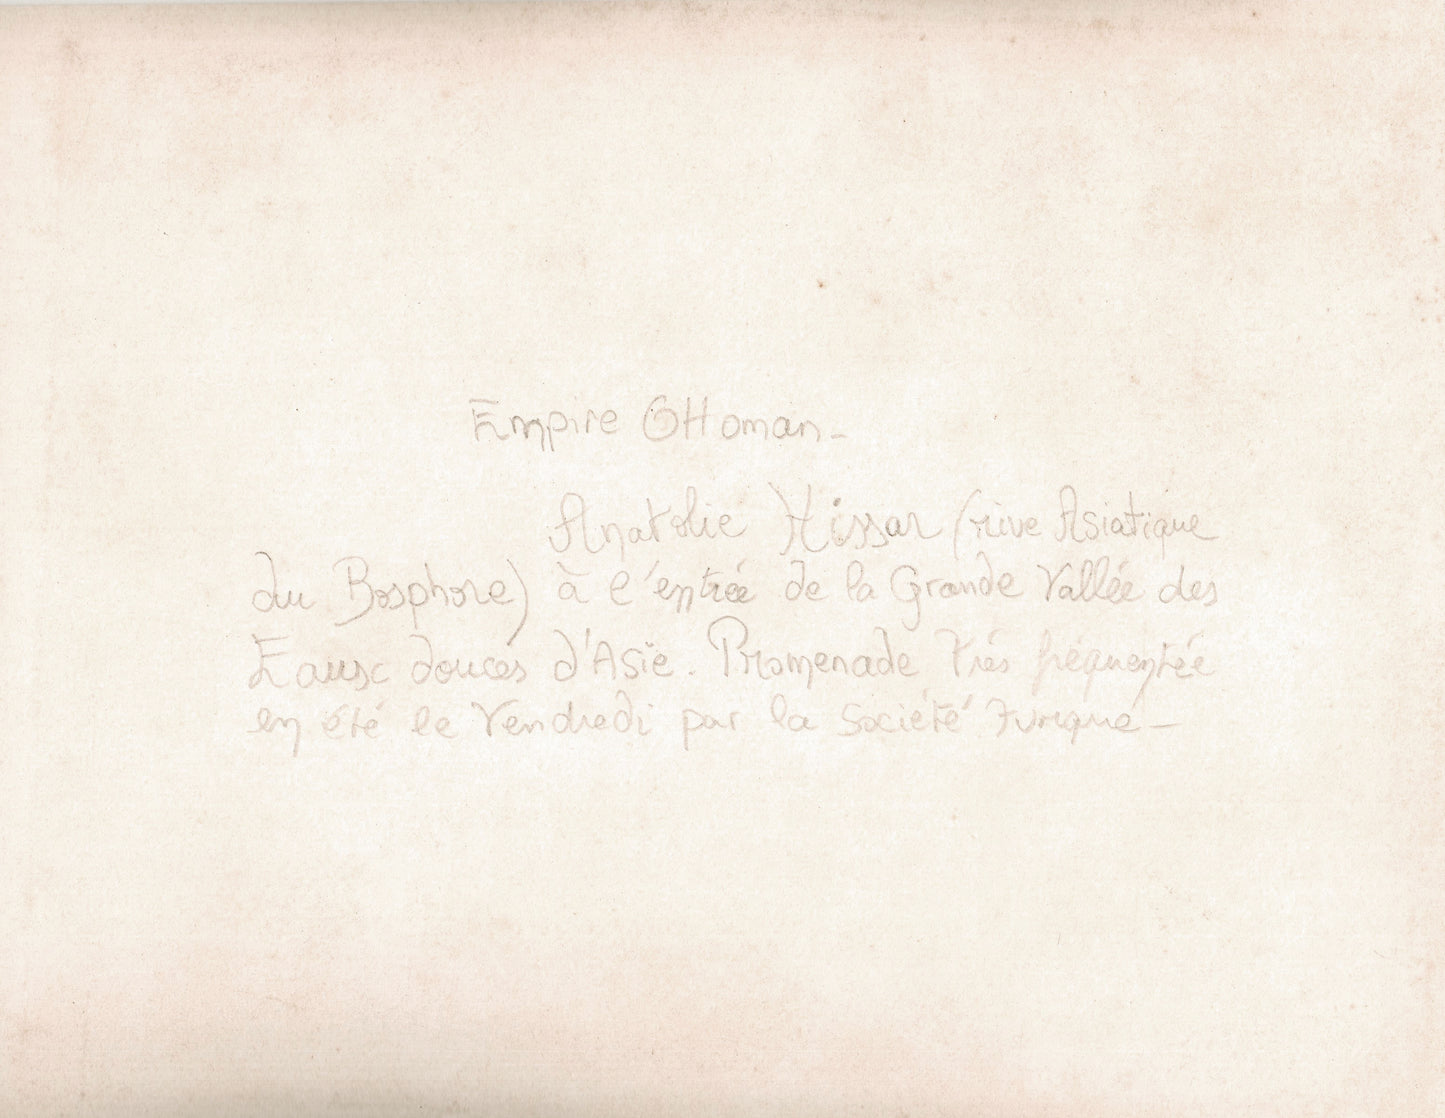 Empire Ottoman -
Anatolie Hissar (rive Asiatique
du Bosphore) à l'entrée de la Grande Vallée des
Eaux douces d'Asïe. Promenade très fréquentée
en été le Vendredi par la Société Turque -